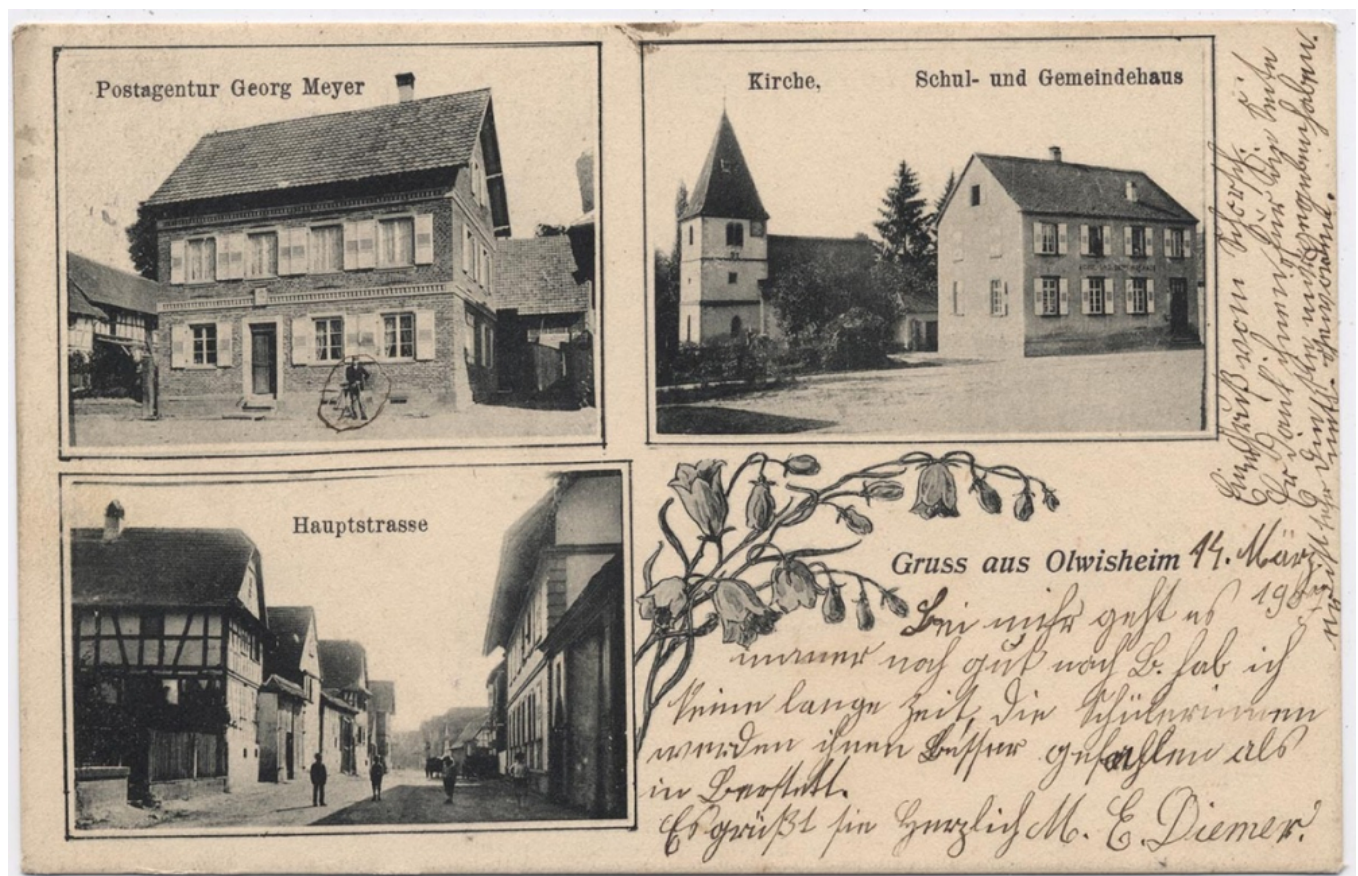 Postagentur Georg Meyer
Kirche,
Schul- und Gemeindehaus
Hauptstrasse
Gruss aus Olwisheim
14. März
Bei mihr geht es
immer noch gut nach B. hab ich
keine lange Zeit, die Schülerinnen
werden ihnen besser gefahlen als
in Berstett.
Es grüßt sie Herzlich M. E. Diemer.
Ein Gruß vom
Er dankt ihnen für die Seife